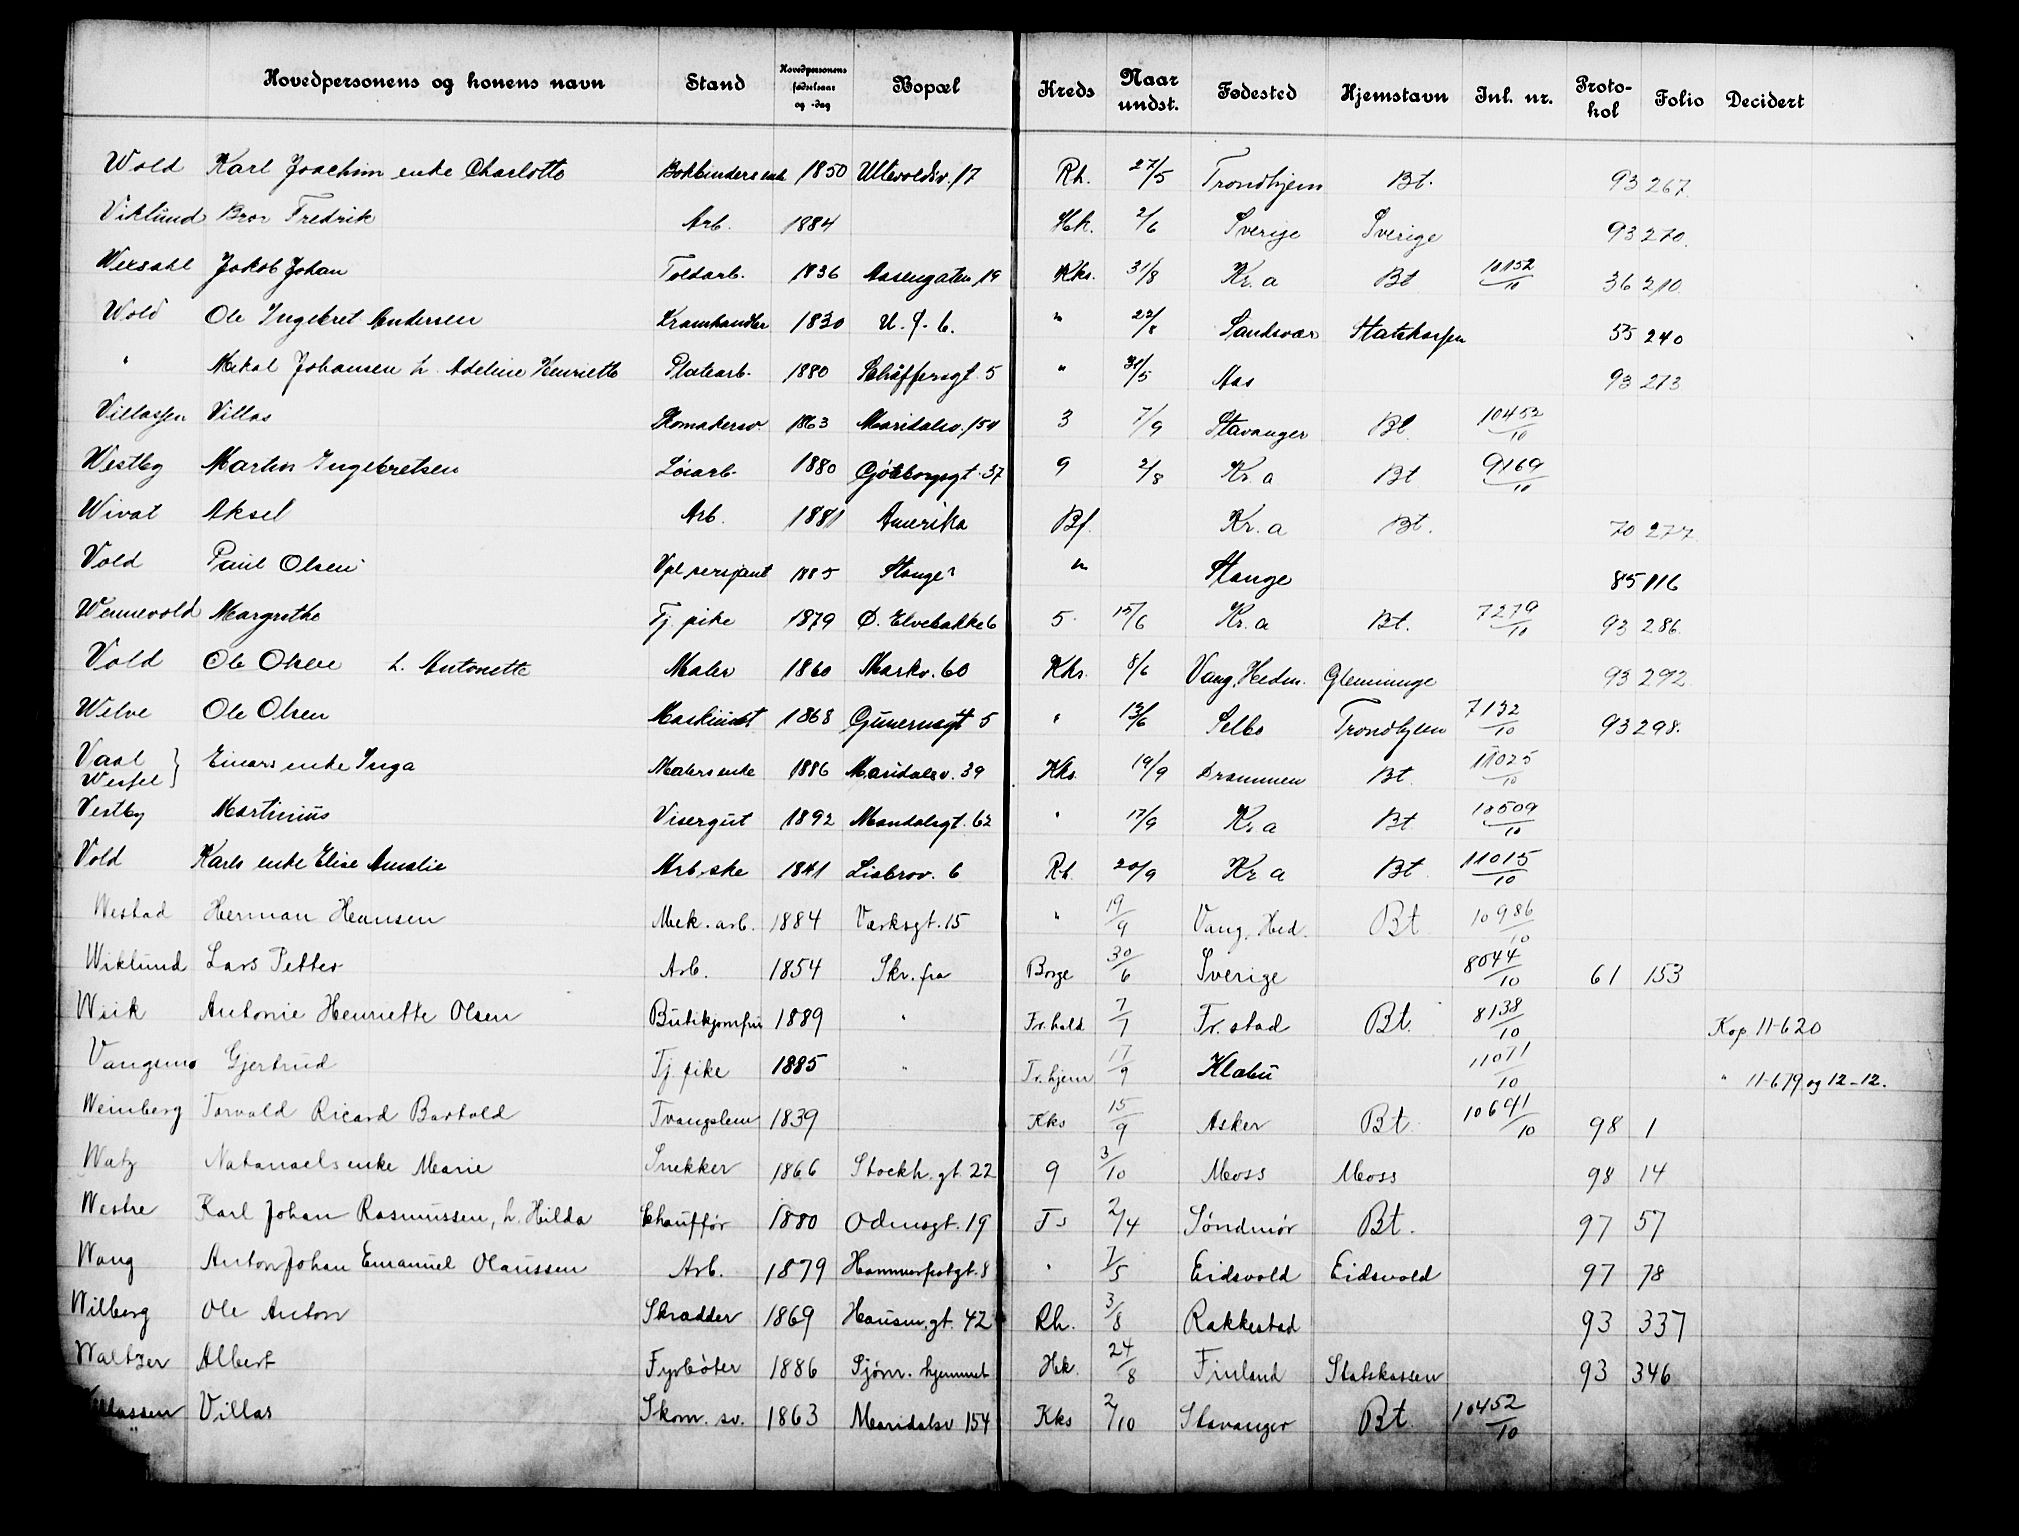 Hovedpersonens og konens navn Stand Hovedpersonens fødselsaar og -dag Bopæl Kreds Naar undst. Fødested Hjemstavn Inl. nr. Protokol Folio Decidert
Wold Karl Joachim enke Charlotte Bokbinders enke 1850 Ullevoldsv. 17 Rh. 27/5 Trondhjem Bt. 93 267.
Viklund Bror Fredrik Arb. 1884 Hk. 2/6 Sverige Sverige 93 270.
Jakob Johan Toldarb. 1836 Aasengaten 19 Kks. 31/8 Kr.a Bt 10152/10 36 210
Wold Ole Ingebret Andersen Kramhandler 1830 U. f. b. " 22/8 Sandsvær Statskassen 55 240
" Mikal Johansen h. Adeline Henriette Platearb. 1880 Schäffersgt. 5 " 31/5 Aas 93 273
Villassen Villas Skomakersv. 1863 Maridalsv. 154 3 7/9 Stavanger Bt. 10452/10
Westby Martin Ingebretsen Løsarb. 1880 Gjøteborggt. 37 9 2/8 Kr.a Bt 9169/10
Wivat Aksel Arb. 1881 Amerika Bf. Kr.a Bt. 70 277
Vold Paul Olsen Vpl. sersjant 1885 Stange? " Stange 85 116
Wennevold Margrethe Tj. pike 1879 Ø. Elvebakke 6 5 15/6 Kr.a Bt. 7279/10 93 286.
Vold Ole Olsen h. Antonette Maler 1860 Markv. 60 Kks. 8/6 Vang, Hedm. Glemminge 93 292.
Welve Ole Olsen Maskinist 1868 Gunerusgt 5 " 13/6 Selbo Trondhjem 7132/10 93 298.
Vaal } Einars enke Inga Malers enke 1886 Maridalsv. 39 Kks 19/9 Drammen Bt. 11025/10
Wessel }
Vestby Martinius Visergut 1892 Mandalsgt. 62 " 17/9 Kr.a Bt 10509/10
Vold Karls enke Elise Amalie Arb.ske 1841 Lisbrov. 6 Rh. 20/9 Kr.a Bt. 11015/10
Westad Herman Hansen Mek. arb. 1884 Værksgt. 15 " 19/9 Vang, Hed. Bt. 10986/10
Wiklund Lars Petter Arb. 1854 Skr. fra Borge 30/6 Sverige 8044/10 61 153
Wiik Antonie Henriette Olsen Butikjomfru 1889 " Fr.hald 7/7 Fr. stad Bt. 8138/10 Kop 11-620
Vangsmo Gjertrud Tj. pike 1885 " Tr.hjem 17/9 Klæbu 11071/10 " 11-679 og 12-12.
Weinberg Torvald Ricard Bartold Tvangslem 1839 Kks 15/9 Asker Bt. 10691/10 98 1
Watz Natanaels enke Marie Snekker 1866 Stockh. gt. 22 9 3/10 Moss Moss 98 14
Westre Karl Johan Rasmussen, h. Hilda Chauffør 1880 Odinsgt. 19 Ts 2/4 Søndmør Bt. 97 57
Wang Anton Johan Emanuel Olaussen Arb. 1879 Hammerfestgt. 8 " 7/5 Eidsvold Eidsvold 97 78
Wilberg Ole Anton Skrædder 1869 Hausm. gt. 42 Rh. 3/8 Rakkestad 93 337
Waltzer Albert Fyrbøter 1886 Sjøm. hjemmet Hk. 24/8 Finland Statskassen 93 346
Villassen Villas Skom. sv. 1863 Maridalsv 154 Kks 2/10 Stavanger Bt. 10452/10